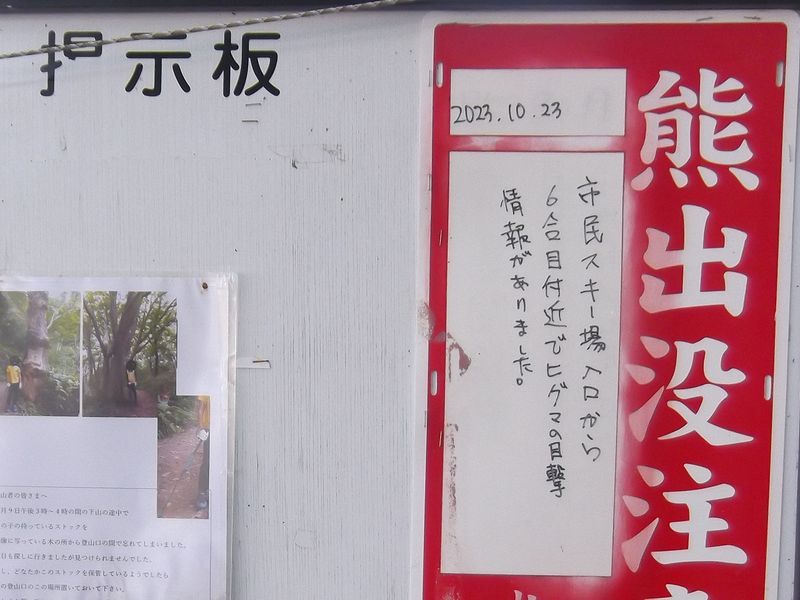 掲示板
熊出没注
2023.10.23
市民スキー場入口から
6合目付近でヒグマの目撃
情報がありました。
山者の皆さまへ
月9日午後3時～4時の間の下山の途中で
の子の持っているストックを
像に写っている木の所から登山口の間で忘れてしまいました。
日も探しに行きましたが見つけられませんでした。
し、どなたかこのストックを保管しているようでしたら
の登山口のこの場所置いておいて下さい。